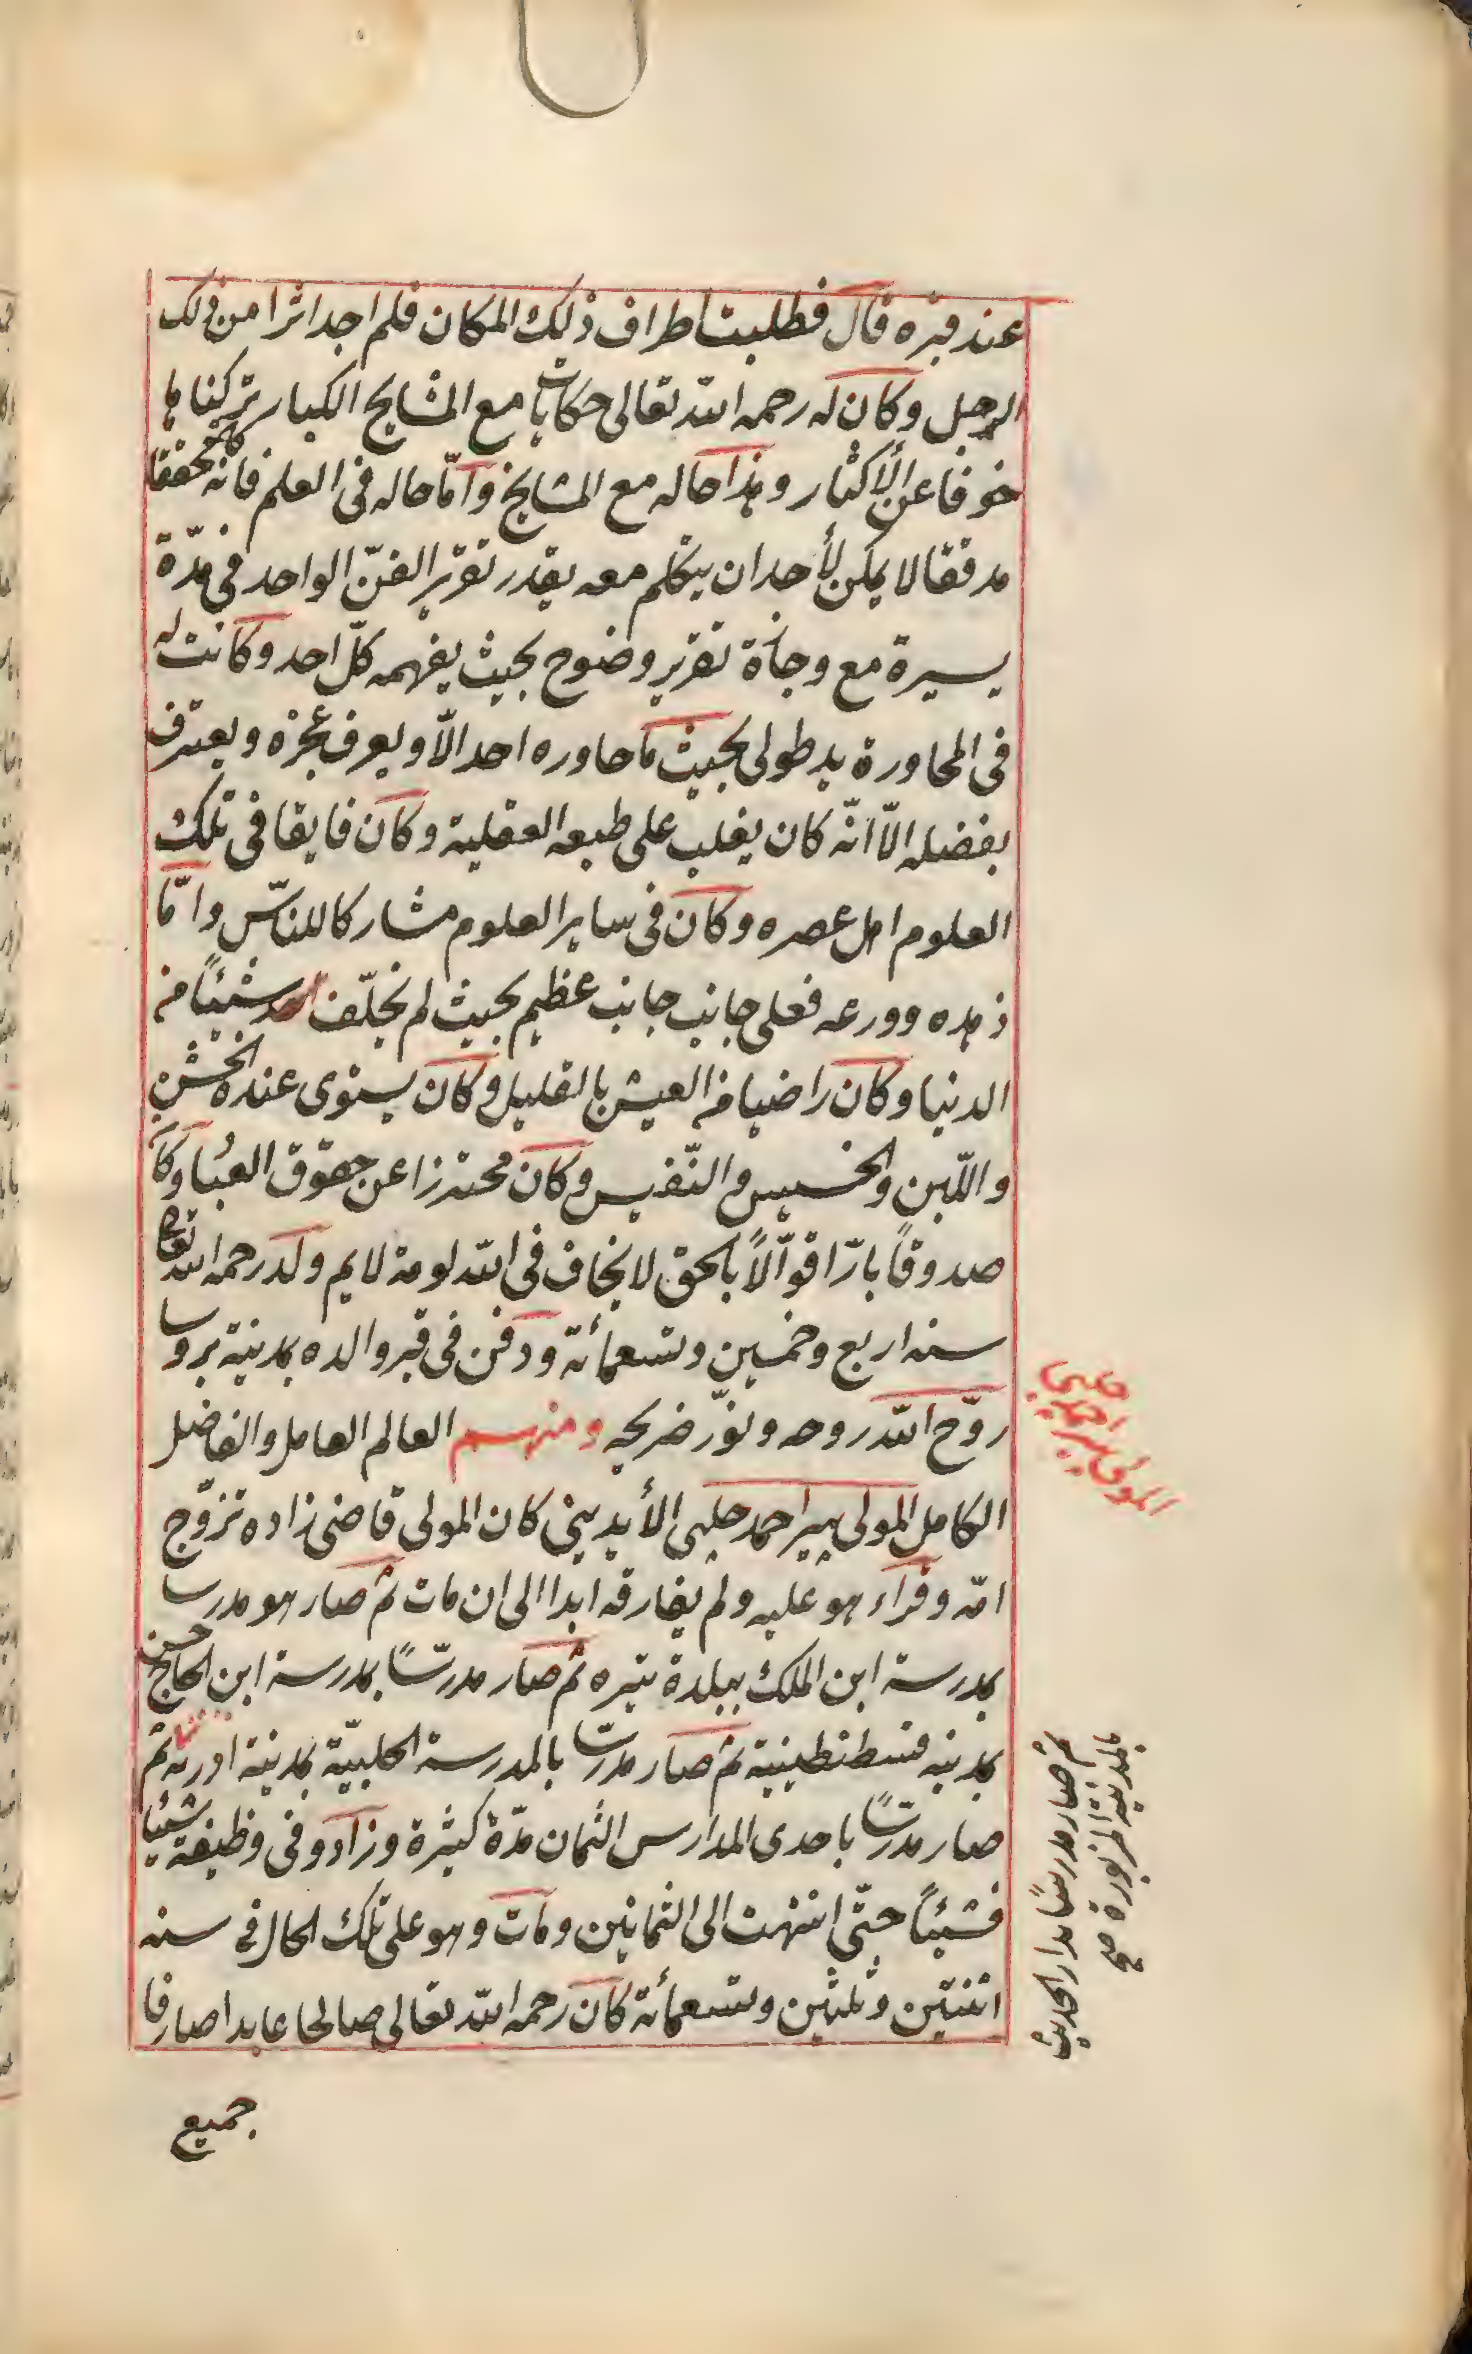 عند قبره قال فطلبت اطراف ذلك المكان فلم اجد اثرا من ذلك
الرجل وكان له رحمه الله تعالى حكايات مع المشايخ الكبار تركناها
خوفا عن الأكثار وهذا حاله مع المشايخ وامّا حاله فى العلم فانه كان محققا
مدققا لا يمكن لأحد ان يتكلم معه يقدر تقرير الفنّ الواحد فى مدّة
يسيرة مع وجازة تقرير وضوح بحيث يفهمه كلّ احد وكانت له
فى المحاورة يد طولى بحيث ما حاوره احد الّا ويعرف عجزه ويعترف
بفضله الّا انّه كان يغلب على طبعه العقلية وكان فايقا فى تلك
العلوم اهل عصره وكان فى ساير العلوم مشاركا للناسّ وامّا
زهده وورعه فعلى جانب جانب عظيم بحيث لم يخلّف شيئًا من
الدنيا وكان راضيا من العيش بالقليل وكان يستوى عنده الخشن
واللّين والخسيس والنّفيس وكان محترزا عن حقوق العباد وكان
صدوقًا بارّا قوّالًا بالحق لا يخاف فى الله لومة لايم ولد رحمه الله تعالى
سنه اربع وخمسين وتسعمائة ودفن فى قبر والده بمدينة بروسا
روّح الله روحه ونوّر ضريحه ومنهم العالم العامل والفاضل
الكامل المولى بير احمد جلبى الأيدينى كان المولى قاضى زاده تزوّج
امّه وقراء هو عليه ولم يفارقه ابدا الى ان مات ثم صار هو مدرسا
بمدرسة ابن الملك ببلدة تيره ثم صار مدرّسًا بمدرسة ابن الحاج حسن
بمدينه قسطنطينية ثم صار مدرّسا بالمدرسة الحلبيّة بمدينة ادرنه ثم
صار مدرّسًا باحدى المدارس الثمان مدّة كثيرة وزادو فى وظيفته شيئًا
فشيئًا حتّى انتهت الى الثمانين ومات وهو على تلك الحال فى سنه
اثنتين وثلثين وتسعمائة كان رحمه الله تعالى صالحا عابدا صارفا
جميع
المولى بير احمد جلبى
ثم صار مدرسًا بدار الحديث
بالمدينة المزبورة صح